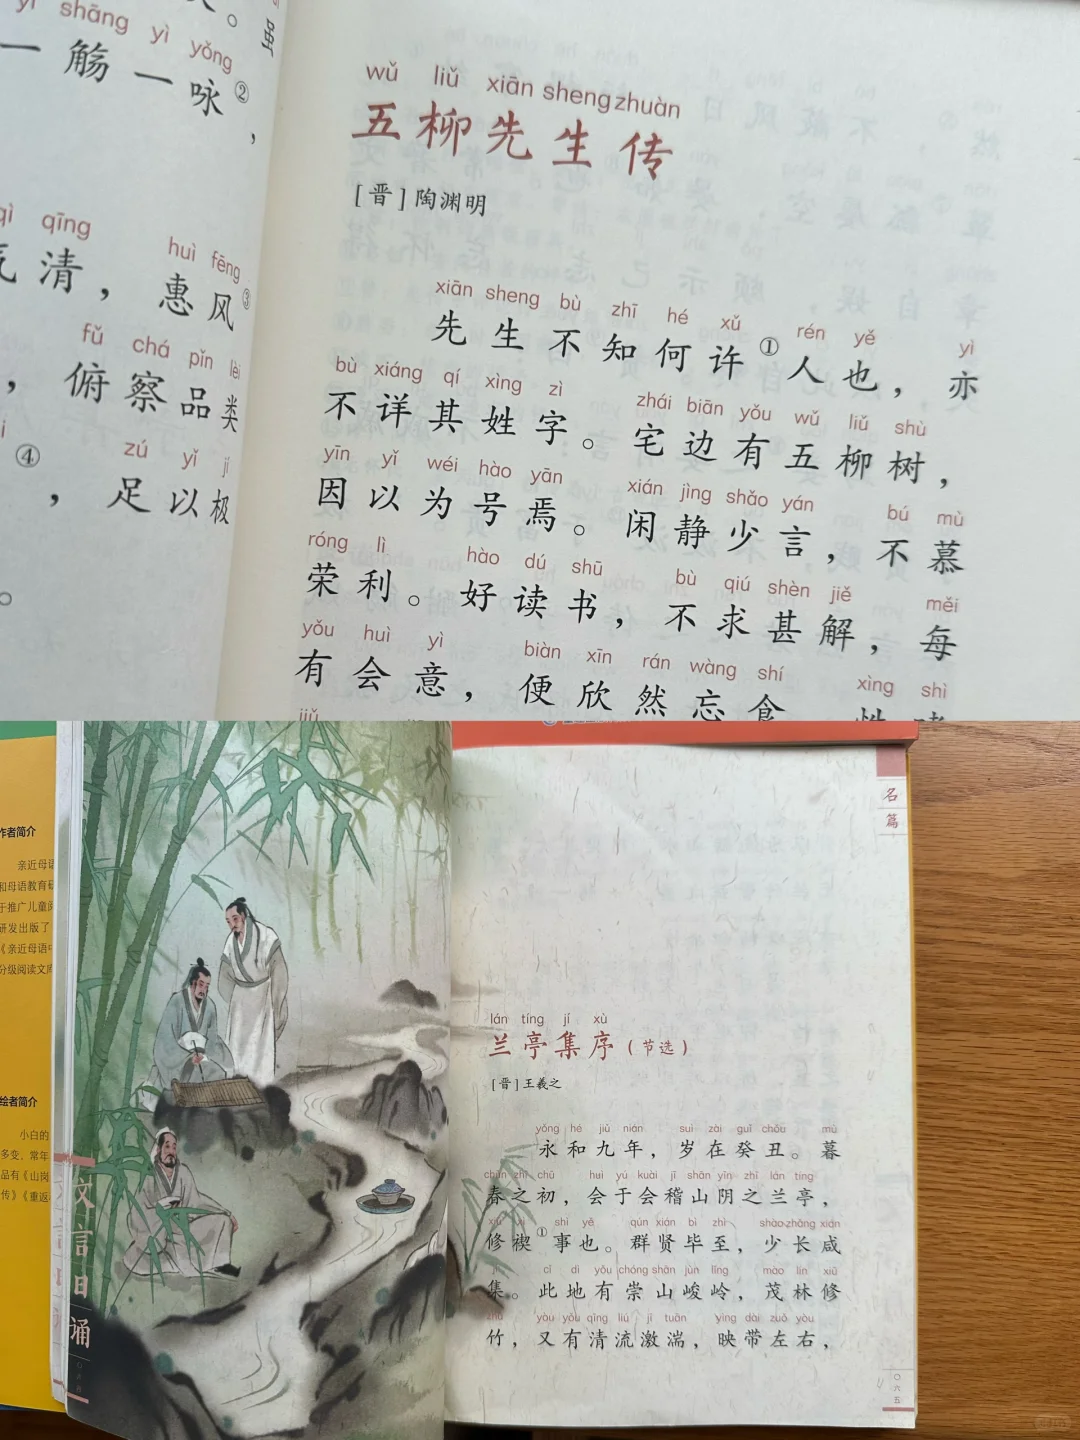 yì shāng yì yǒng
一觞一咏②，
虽
qì qīng huì fēng
气清，惠风③
fǔ chá pǐn lèi
，俯察品类
④ zú yǐ jí
，足以极
。
wǔ liǔ xiān sheng zhuàn
五柳先生传
［晋］陶渊明
xiān sheng bù zhī hé xǔ rén yě yì
先生不知何许①人也，亦
bù xiáng qí xìng zì zhái biān yǒu wǔ liǔ shù
不详其姓字。宅边有五柳树，
yīn yǐ wéi hào yān xián jìng shǎo yán bú mù
因以为号焉。闲静少言，不慕
róng lì hào dú shū bù qiú shèn jiě měi
荣利。好读书，不求甚解，每
yǒu huì yì biàn xīn rán wàng shí xìng shì
有会意，便欣然忘食
jiǔ
作者简介
亲近母语
和母语教育研
于推广儿童阅
研发出版了
《亲近母语中
分级阅读文库
绘者简介
小白的
多变，常年
品有《山岗
传》《重返
文言日诵
名篇
lán tíng jí xù
兰亭集序（节选）
［晋］王羲之
yǒng hé jiǔ nián suì zài guǐ chǒu mù
永和九年，岁在癸丑。暮
chūn zhī chū huì yú kuài jī shān yīn zhī lán tíng
春之初，会于会稽山阴之兰亭，
xiū xì shì yě qún xián bì zhì shào zhǎng xián
修禊①事也。群贤毕至，少长咸
jí cǐ dì yǒu chóng shān jùn lǐng mào lín xiū
集。此地有崇山峻岭，茂林修
zhú yòu yǒu qīng liú jī tuān yìng dài zuǒ yòu
竹，又有清流激湍，映带左右，
〇六五